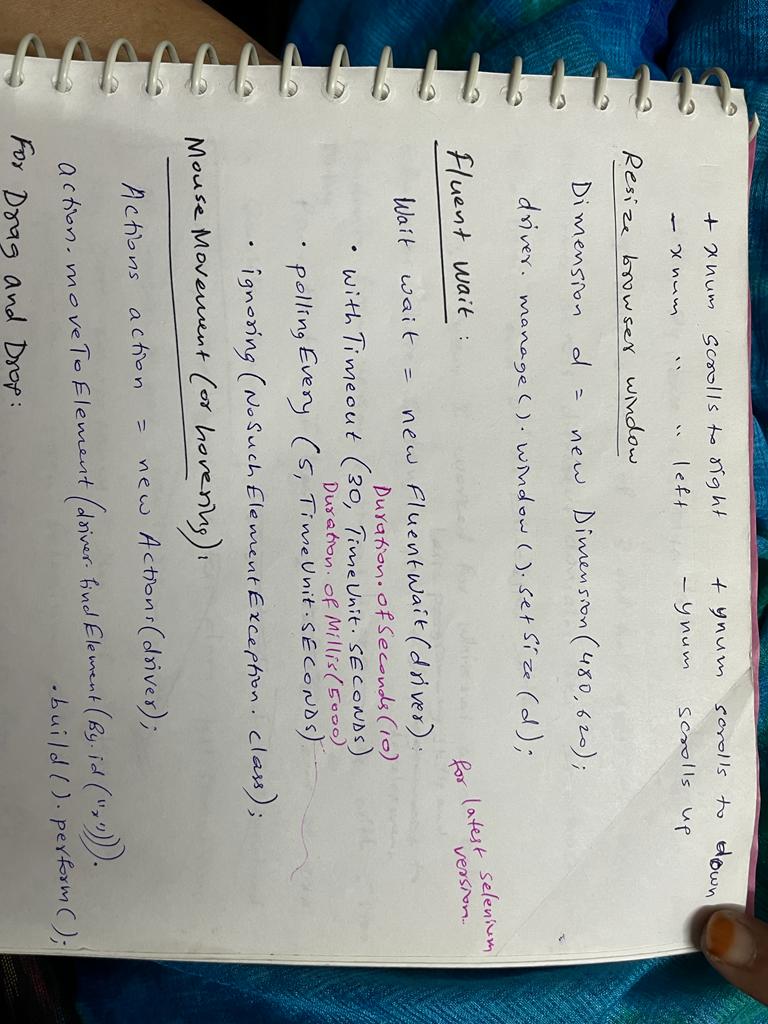 + xnum scrolls to right + ynum scrolls to down
- xnum " " left - ynum scrolls up
Resize browser window
Dimension d = new Dimension(480,620);
driver. manage(). window(). setSize(d);
Fluent Wait :
for latest selenium
version..
Wait wait = new FluentWait(driver).
Duration. of Seconds(10)
· withTimeout (30, TimeUnit. SECONDS)
Duration. of Millis(5000)
· pollingEvery (5, TimeUnit.SECONDS)
· ignoring (NoSuchElementException. class);
Mouse Movement (or hovering):
Actions action = new Actions(driver);
action. moveToElement (driver. findElement (By.id ("x"))).
.build(). perform();
For Drag and Drop: